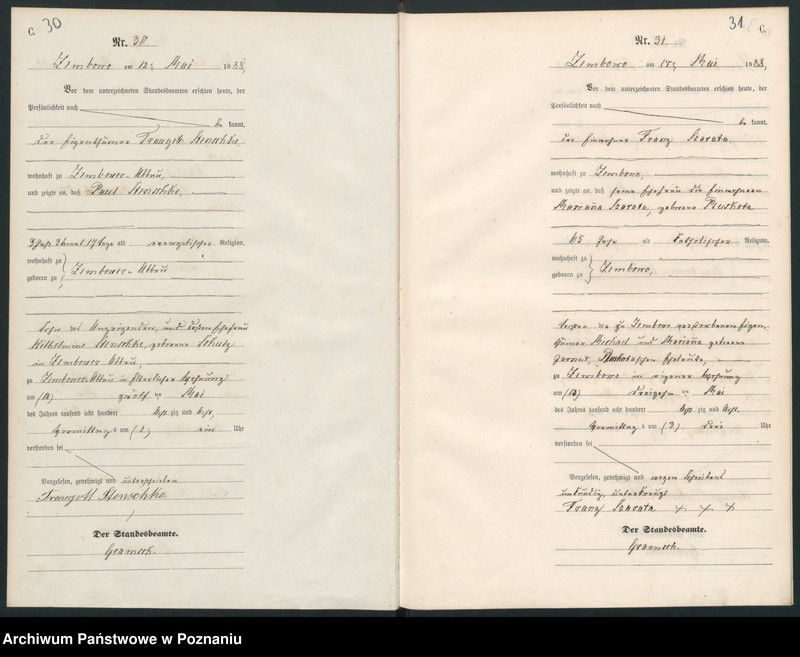 C. 30
Nr. 30
Zembowo am 12, Mai 1888,
Vor dem unterzeichneten Standesbeamten erschien heute, der
Persönlichkeit nach
be kannt,
der Eigenthümer Traugott Renschke,
wohnhaft zu Zembowo-Abbau,
und zeigte an, daß Paul Renschke,
alt evangelischer Religion,
wohnhaft zu
geboren zu Zembowo-Abbau
Sohn des Anzeigenden, und dessen Ehefrau
Wilhelmine Renschke, geborene Schulz
in Zembowo Abbau,
zu Zembowo-Abbau in elterlicher Wohnung
am zwölf ten Mai
des Jahres tausend acht hundert acht zig und acht,
Vormittags um (1) ein Uhr
verstorben sei
Vorgelesen, genehmigt und unterschrieben
Traugott Renschke
Der Standesbeamte.
Gramsch.
31 C.
Nr. 31.
Zembowo am Mai 1888,
Vor dem unterzeichneten Standesbeamten erschien heute, der
Persönlichkeit nach
be kannt,
der Einwohner Franz Szarata,
wohnhaft zu Zembowo,
und zeigte an, daß seine Ehefrau die Einwohnerin
Marianna Szarata, geborene Pluskota
65 Jahr alt katholischer Religion,
wohnhaft zu
geboren zu Zembowo,
Tochter der zu Zembowo verstorbenen Eigen-
thümer Michael und Marianna geborene
Eheleute,
zu Zembowo in eigener Wohnung
am (13) dreizehn ten Mai
des Jahres tausend acht hundert acht zig und acht,
Vormittags um (3) drei Uhr
verstorben sei
Vorgelesen, genehmigt und wegen Schreibens
unkundig, unterkreuzt
Franz Szarata + + +
Der Standesbeamte.
Gramsch.
Archiwum Państwowe w Poznaniu